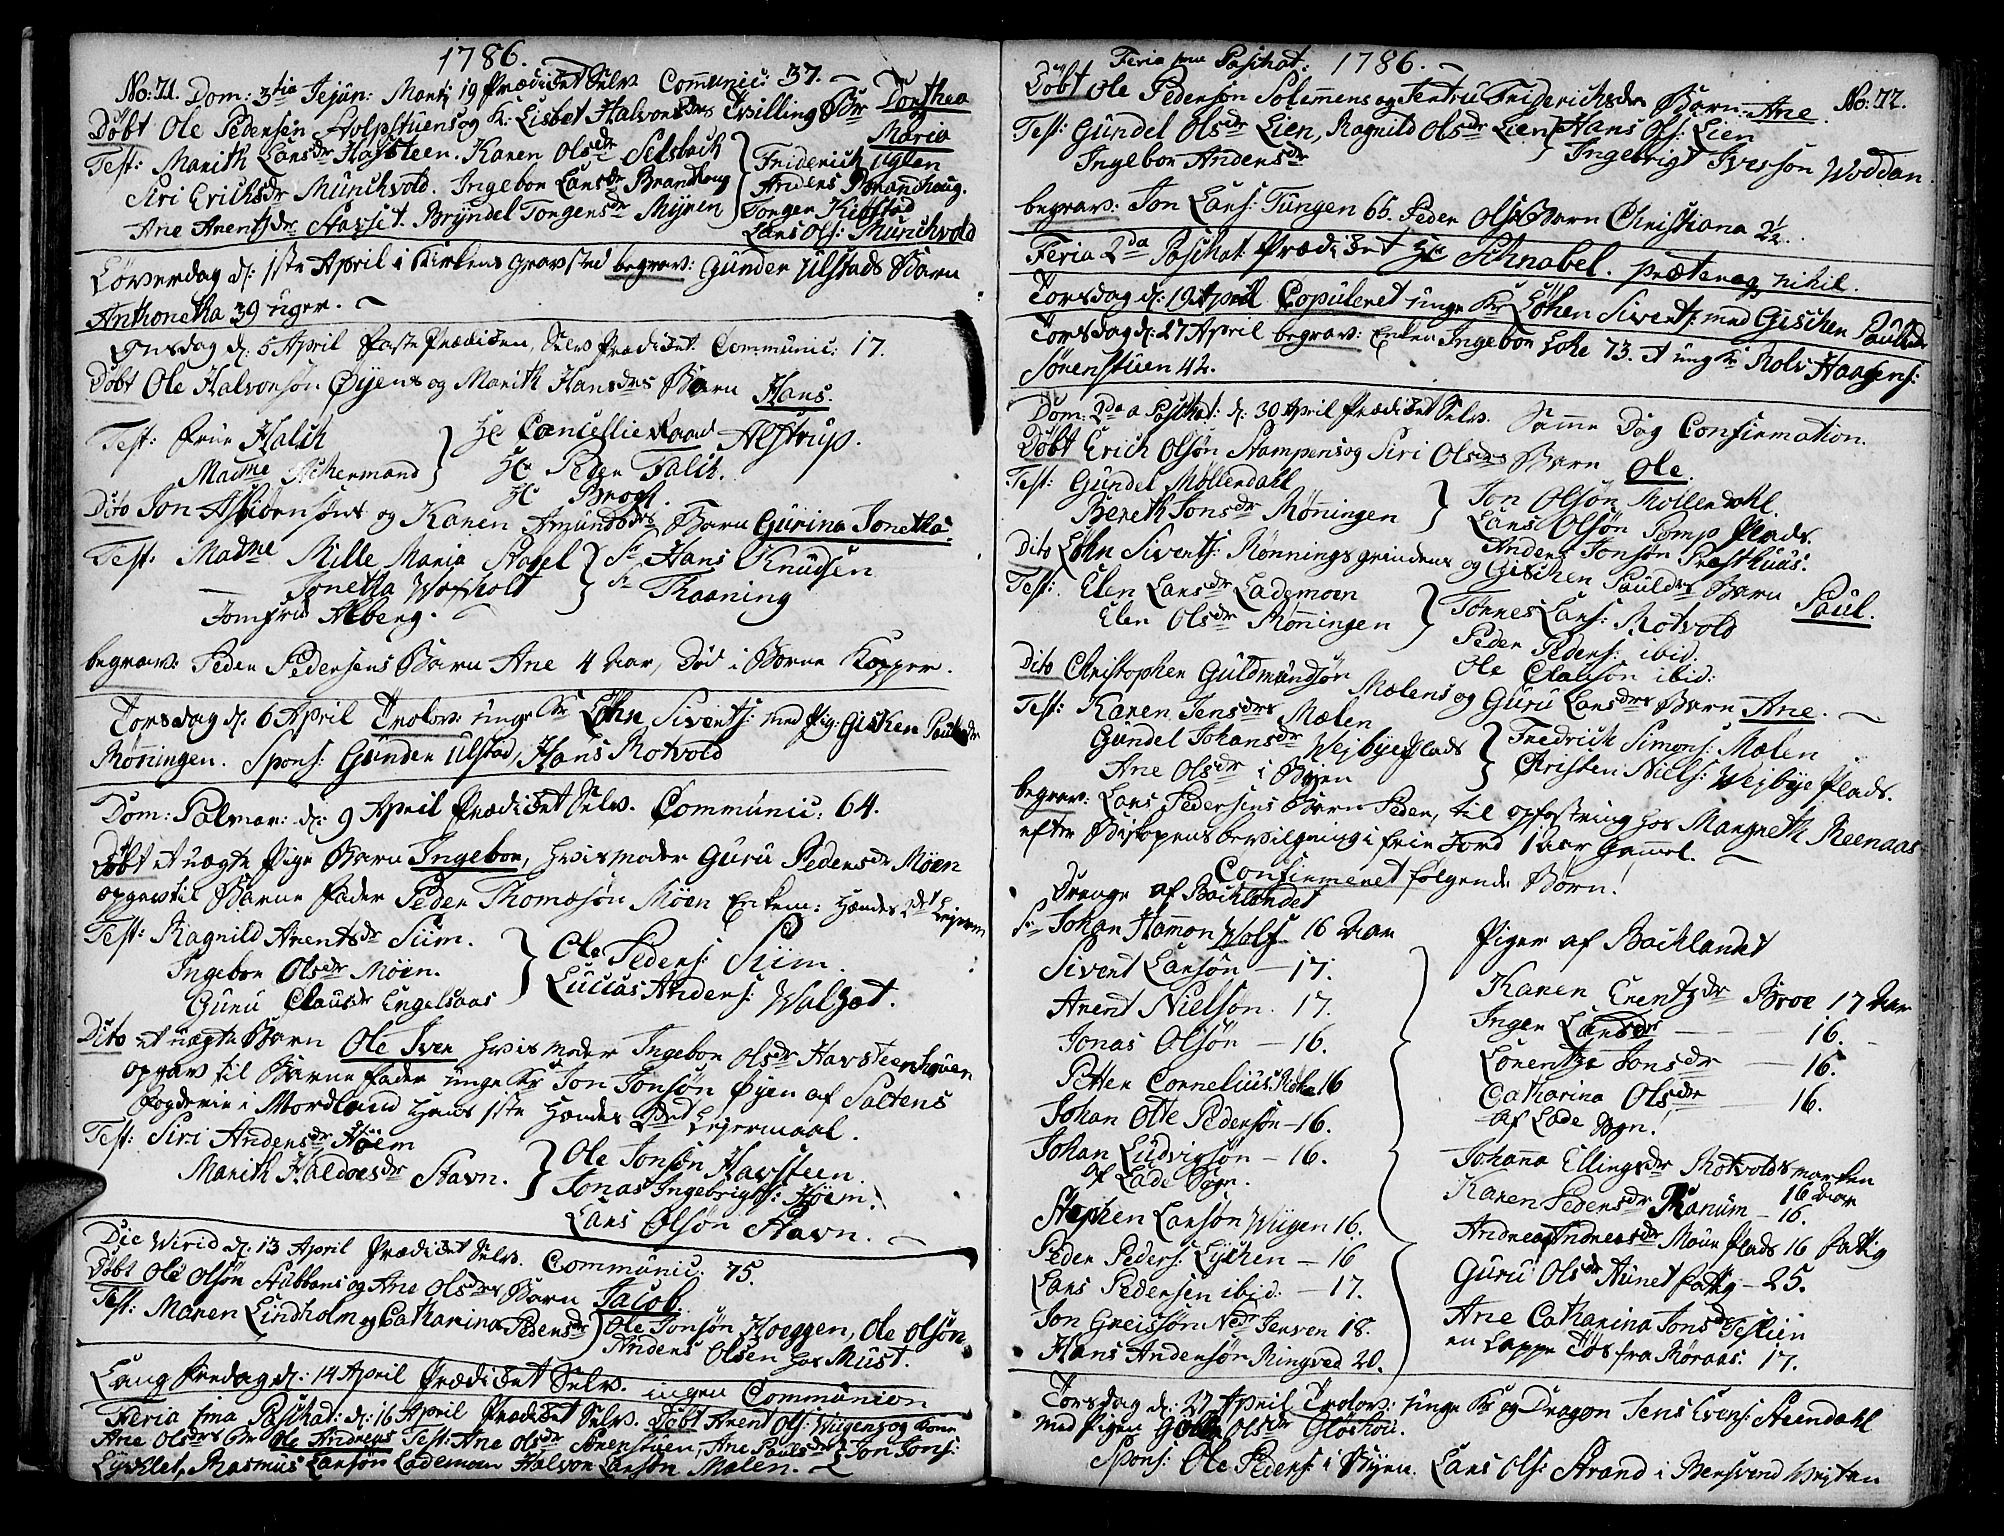 1786.
No: 71. Dom: 3tia Jejun: Martj 19 Prædicket Selv. Communic: 37.
Døbt Ole Pedersen Stolpstuens og K: Lisbet Halvorsdrs Tvilling Br Dorthea og Maria
Test: Marith Larsdr Havsteen. Karen Olsdr Selsbach } Friderich Uglen
Siri Eriksdr Munchvold. Ingebor Larsdr Brandhaug } Anders Brandhaug.
Ane Arentsdr Stavset. Bryndel Torgersdr Myren } Torger Kiøstad
Lars Ols: Munchvold
Løverdag d: 1ste April i Kirkens Gravsted begrav: Gunder Ulstads Barn
Anthonetha 39 uger.
Onsdag d: 5 April faste Prædiken, Selv Prædicket Communic: 17.
Døbt Ole Halvorsøn Øyens og Marith Hansdrs Barn Hans.
Test: frue Halck } Hr Cancellie Raad Alstrup.
Madme Ackermand } Hr Peder Falck.
Hr Brogh.
Dito Jon Asbiørnsøns og Karen Amundsdrs Barn Gurina Jonetha.
Test: Madme Mille Maria Stabel } Sr Hans Knudsen
Jonetha Woxholt } Sr Thaaning
Jomfru Alberg.
begrav: Peder Pedersens Barn Ane 4 Aar, Død i Børne Kopper.
Torsdag d: 6 April Trolov: unge Kr Lohn Sivertz: med Pig: Gisken Paulsdr
Rønningen. Spons: Gunder Ulstad, Hans Rotvold
Dom: Palmar: d: 9 April Prædicket Selv. Communic: 64.
Døbt et uægte Pige Barn Ingebor, hvis moder Guru Pedersdr Moen
opgav til Barne fader Peder Thomæsøn Moen Enkem: hendes 2det Lejerm
Test: Ragnild Arentsdr Siim. } Ole Peders: Siim.
Ingebor Olsdr Moen. } Lucias Anders: Walset.
Guru Clausdr Engelsaas
Dito et uægte Barn Ole Iver hvis moder Ingebor Olsdr Havsteenhouen
opgav til Barne fader unge Kr Jon Jonsøn Øyen af Saltens
fogderie i Nordland hans 1ste hendes 2det Lejermaal.
Test: Siri Andersdr Høiem } Ole Jonsøn Havsteen.
Marith Haldoesdr Stavn. } Jonas Ingebrigts: Høiem.
Lars Olsøn Stavn.
Die Virid: d: 13 April Prædicket Selv. Communic: 75.
Døbt Ole Olsøn Stubbans og Ane Olsdrs Barn Jacob.
Test: Maren Lindholm og Catharina Pedersdr } Ole Jonsøn Hoeggen, Ole Olsøn
Anders Olsen hos Must.
Lang fredag d: 14 April Prædicket Selv. ingen Communion
Feria 1ma Paschat: d: 16 April Prædicket Selv. Døbt Arent Ols: Wiigens og Kone
Ane Olsdrs Br Ole Andreas Test: Ane Olsdr Sørenstuen, Ane Paulsdr } Jon Jons:
Lykket, Rasmus Larsøn Lademoen Halvor Larsøn Malen.
Feria 1ma Paschat: 1786.
No: 72.
Døbt Ole Pedersøn Solemmens og Jertru Friderichsdrs Barn Ane.
Test: Gundel Olsdr Lien, Ragnild Olsdr Lien } Hans Ols: Lien
Ingebor Andersdr } Ingebrigt Iversøn Woddan.
begrav: Jon Lars: Tungen 65. Peder Ols: Barn Christiana 2½.
Feria 2da Paschat Prædicket Hr Schnabel. præterea nihil.
Torsdag d: 19 April Copuleret unge Kr Lohn Sivertz: med Gischen Paulsdr
Torsdag d: 27 April begrav: Enken Ingebor Lohe 73. et ung Kr Rolv Haagens:
Sørenstuen 42.
Dom: 2da a Paschat: d: 30 April Prædicket Selv. Samme Dag Confirmation.
Døbt Erich Olsøn Stampens og Siri Olsdrs Barn Ole.
Test: Gundel Møllendahl } Jon Olsøn Møllendahl.
Bereth Jonsdr Rønningen } Lars Olsøn Romp Plads.
Anders Jonsøn Præsthuus:
Dito Lohn Sivertz: Rønnings grindens og Gischen Paulsdrs Barn Paul.
Test: Elen Larsdr Lademoen } Tønnes Lars: Rotvold
Elen Olsdr Rønningen } Peder Peders: ibid.
Ole Clausøn ibid:
Dito Christopher Guldmundsøn Mælens og Guru Larsdrs Barn Ane.
Test: Karen Jensdrs Mælen } Fredrich Simons: Mælen
Gundel Johansdr Wejbye Plads } Christen Niels: Wejbye Plads.
Ane Olsdr i Byen
begrav: Lars Pedersens Barn Peder, til opfostring hos Margreth Reenaas
efter Biskopens bevilgning i frie Jord 1 Aar Gammel.
Confirmeret følgende Børn!
Drenge af Backlandet
Sr Johan Hammon Wolf 16 Aar
Sivert Larsøn — 17.
Arent Nielsøn. 17.
Jonas Olsøn — 16.
Petter Cornelius Riche 16
Johan Otte Pedersøn — 16.
Johan Ludvigsøn — 16.
af Lade Sogn.
Stephen Larsøn Wiigen 16.
Peder Peders: Lychen — 16
Lars Pedersen ibid. — 17.
Jon Greisøn Nedr Jerven 18.
Hans Andersøn Ringved 20.
Piger af Backlandet
Karen Erentzdr Broe 17 Aar
Inger Larsdr — 16.
Lorentze Jonsdr — 16.
Catharina Olsdr — 16.
af Lade Sogn.
Johanna Ellingsdr Rotvolds marken 16 Aar
Karen Pedersdr Ranum — 16.
Andrea Andreasdr Moue Plads 16 fattig
Guru Olsdr Aunet fattig — 25.
Ane Catharina Jonsdr Teslien
en Lappe Tøs fra Røraas: 17.
Torsdag d: 27 April Trolov: unge Kr og Dragon Jens Evens: Steendahl
med Pigen Olsdr Gløshou.
Spons: Ole Peders: i Byen. Lars Ols: Strand i Bersvend Vejten